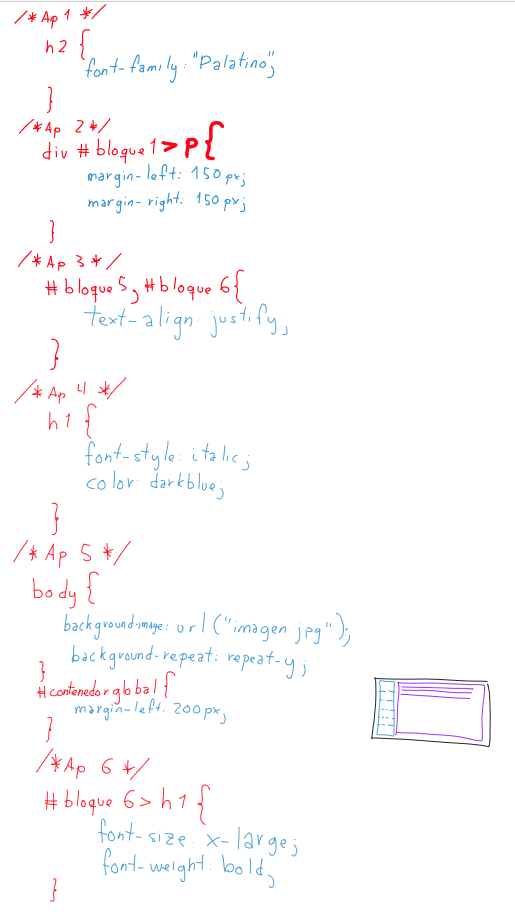 /*Ap 1 */
h2 {
font-family: "Palatino";
}
/*Ap 2 */
div #bloque1 > p {
margin-left: 150 px;
margin-right: 150 px;
}
/*Ap 3 */
#bloque5, #bloque 6{
text-align: justify;
}
/*Ap 4 */
h1 {
font-style: italic;
color: darkblue;
}
/*Ap 5 */
body {
background-image: url("imagen.jpg");
background-repeat: repeat-y;
}
#contenedorglobal {
margin-left: 200 px;
}
/*Ap 6 */
#bloque 6 > h1 {
font-size: x-large;
font-weight: bold;
}